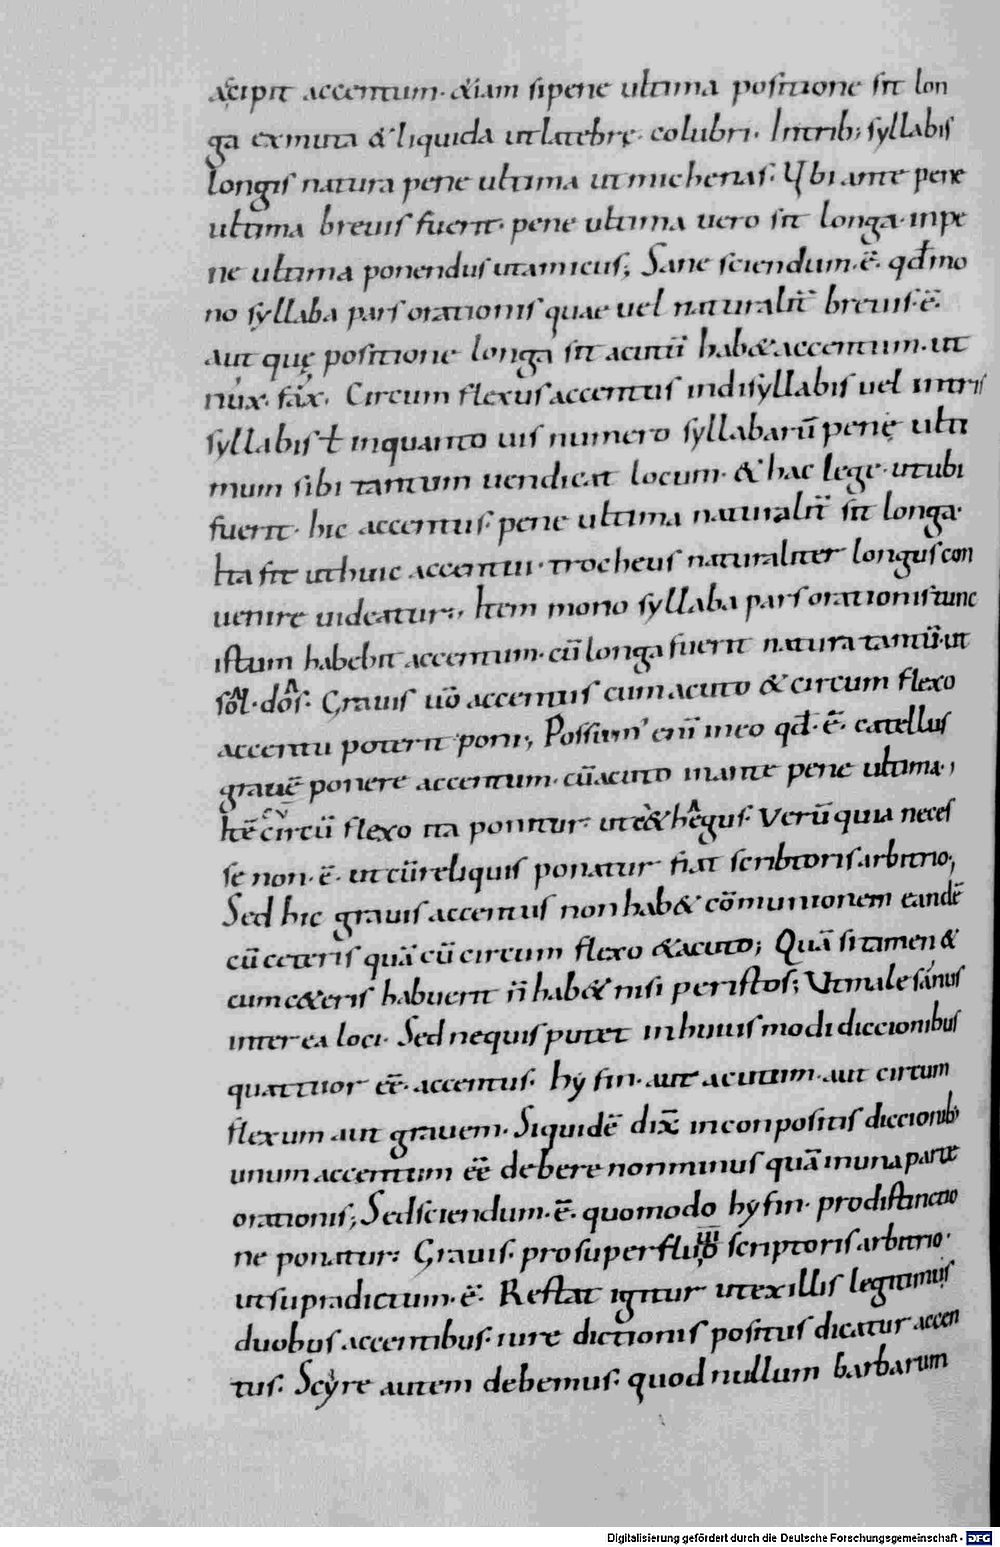 accipit accentum. &iam si pene ultima positione sit lon
ga ex muta & liquida ut latebrę. colubri. In trib; syllabis
longis natura pene ultima ut michenas. Ubi ante pene
ultima breuis fuerit. pene ultima uero sit longa. in pe
ne ultima ponendus ut amicus; Sane sciendum. ē. qđ mo
no syllaba pars orationis quae uel naturalit̄ breuis. ē.
aut quę positione longa sit acutū hab& accentum. ut
núx. fáx. Circum flexus accentus in disyllabis uel in tris
syllabis ł in quanto uis numero syllabarū penę ulti
mum sibi tantum uendicat locum. & hac lege. ut ubi
fuerit. hic accentus. pene ultima naturalit̄ sit longa.
Ita sit ut huic accentui. trocheus naturaliter longus con
uenire uideatur., Item mono syllaba pars orationis tunc
istum habebit accentum. cū longa fuerit natura tantū. ut
sôl. dôs. Grauis uō accentus cum acuto & circum flexo
accentu poterit poni; Possum enī in eo qđ. ē. catellus
grauē ponere accentum. cū acuto in ante pene ultima.,
Itē circū flexo ita ponitur ut è& hêgus. Verū quia neces
se non. ē. ut cū reliquis ponatur fiat scribtoris arbitrio;
Sed hic grauis accentus non hab& cōmunionem eandē
cū ceteris quā cū circum flexo & acuto; Quā si tamen &
cum c&eris habuerit n̄ hab& nisi peristos; Ut male sánus
inter ea loci. Sed nequis putet in huius modi diccionibus
quattuor eē. accentus. hyfin. aut acutum. aut circum
flexum aut grauem. Siquidē dix̄ in conpositis diccionib;
unum accentum eē debere non minus quā in una parte
orationis; Sed sciendum. ē. quomodo hyfin. pro distinctio
ne ponatur: Grauis. pro superfluo scriptoris arbitrio.
ut supra dictum. ē. Restat igitur ut ex illis legitimis
duobus accentibus. iure dictionis positus dicatur accen
tus. Scyre autem debemus. quod nullum barbarum
Digitalisierung gefördert durch die Deutsche Forschungsgemeinschaft - DFG